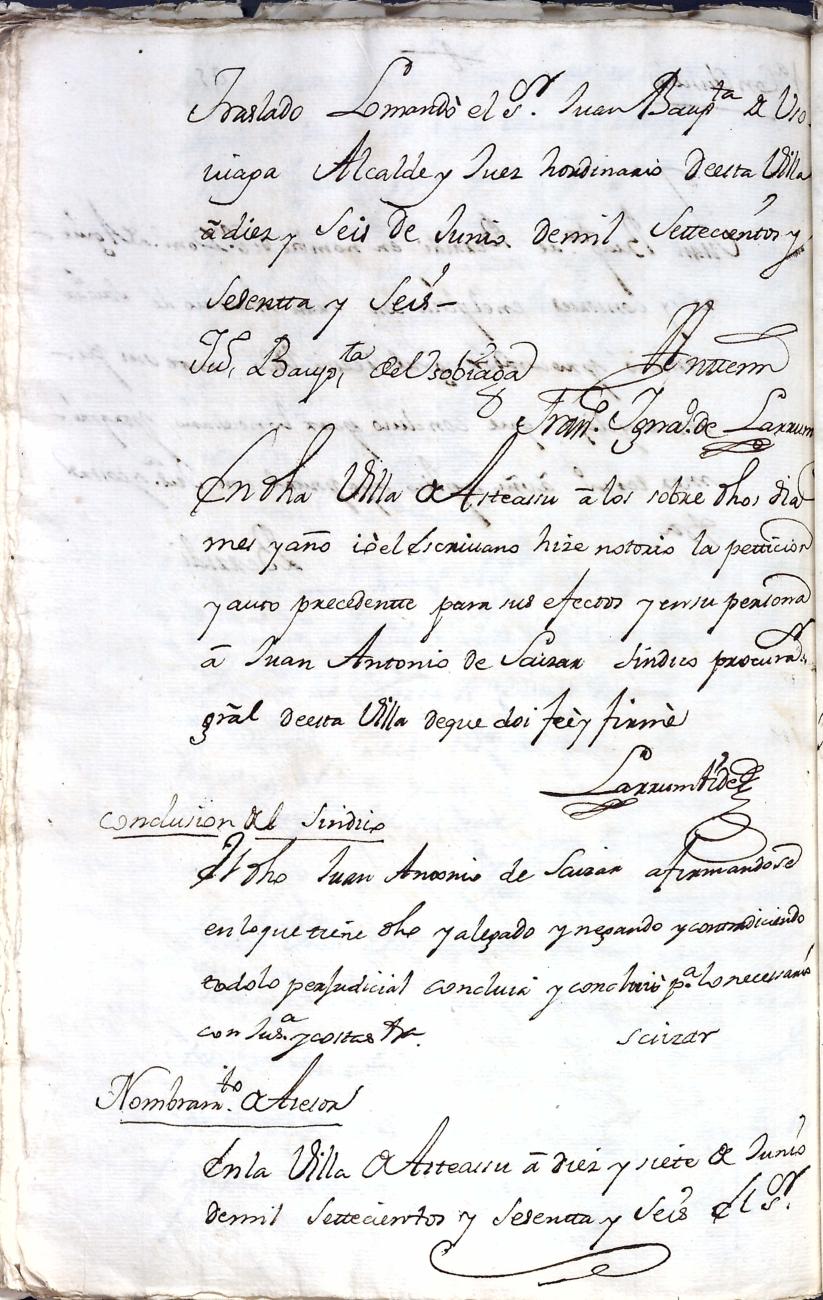 Traslado Lo mandò el Sor. Juan Bapta de Vso
viaga Alcalde y Juez hordinario deesta Villa
â diez y seis de Junio demil Settecientos y
Sesentta y Seis—
Jun. Baupta de Vsobiaga Anttemi
Franco. Ignao. de Larrum
En dha Villa de Asteassu â los sobre dhos dia
mes y año iò el escriuano hize notorio la petticion
y auto precedentte para sus efectos y en su persona
â Juan Antonio de Saizar Sindico procurador
gr̃al deesta Villa deque doi feè y firmè
Larrumbide
conclusion del Sindico
El dho Juan Antonio de Saizar afirmandose
en lo que tiene dho y alegado y negando y contradiciendo
todo lo perjudicial concluia y concluiò pa. lo necessario
con Jusa. y costas
Saizar
Nombramto. de Asesor
En la Villa de Asteassu â diez y siete de Junio
demil settecientos y sesentta y seis el Sor.